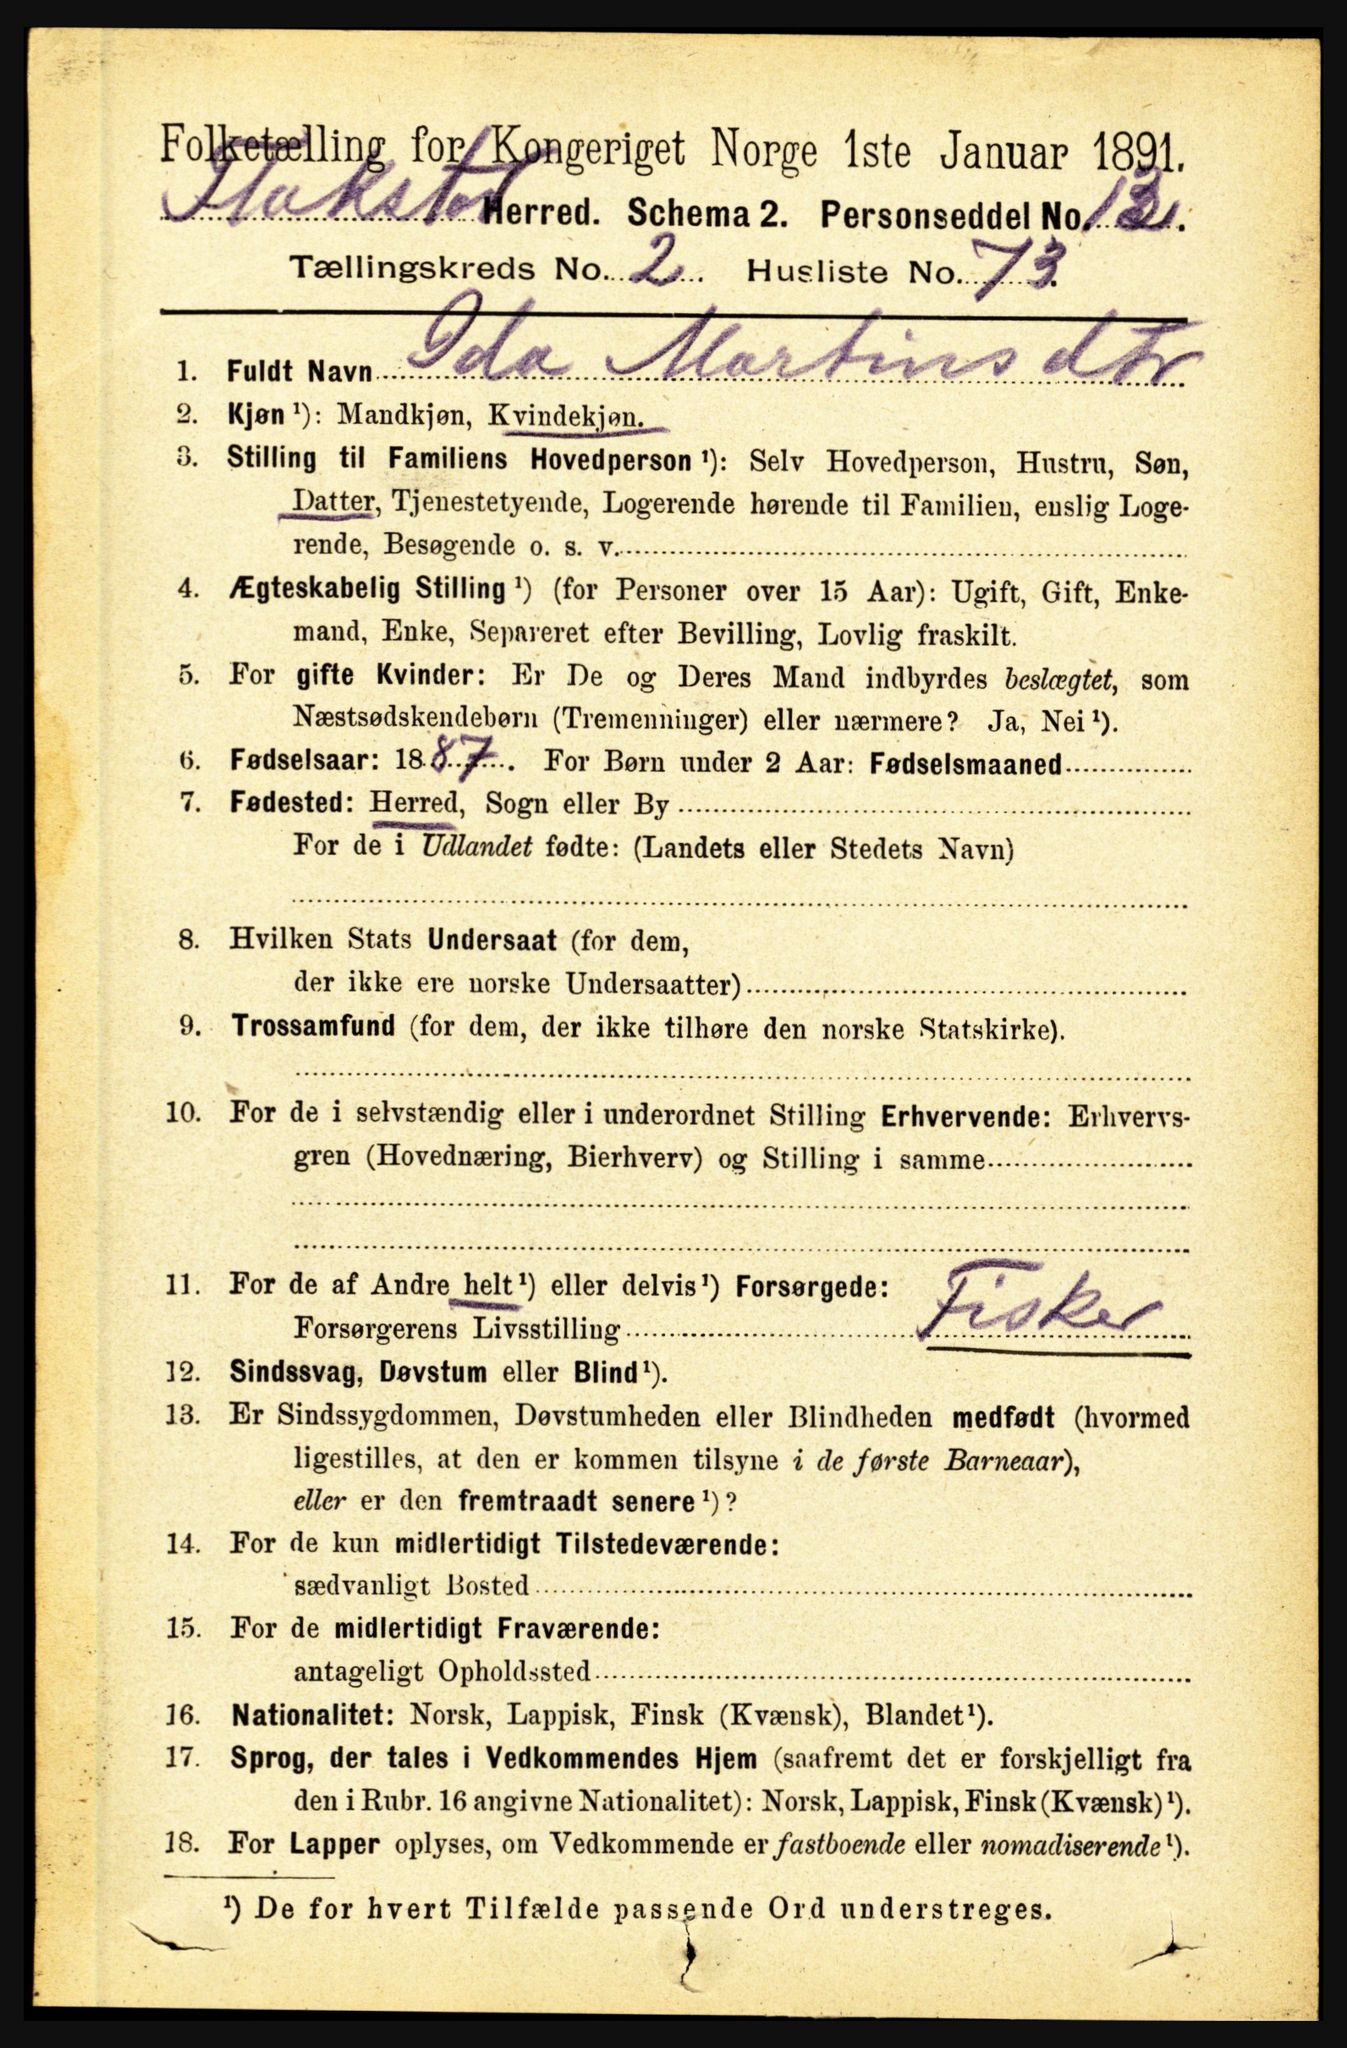 Folketælling for Kongeriget Norge 1ste Januar 1891.
Flakstad Herred. Schema 2. Personseddel No.
Tællingskreds No. 2. Husliste No. 73.
1. Fuldt Navn Ida Martinsdtr
2. Kjøn ¹): Mandkjøn, Kvindekjøn.
3. Stilling til Familiens Hovedperson ¹): Selv Hovedperson, Hustru, Søn,
Datter, Tjenestetyende, Logerende hørende til Familien, enslig Loge-
rende, Besøgende o. s. v.
4. Ægteskabelig Stilling ¹) (for Personer over 15 Aar): Ugift, Gift, Enke-
mand, Enke, Separeret efter Bevilling, Lovlig fraskilt.
5. For gifte Kvinder: Er De og Deres Mand indbyrdes beslægtet, som
Næstsødskendebørn (Tremenninger) eller nærmere? Ja, Nei ¹).
6. Fødselsaar: 1887. For Børn under 2 Aar: Fødselsmaaned
7. Fødested: Herred, Sogn eller By
For de i Udlandet fødte: (Landets eller Stedets Navn)
8. Hvilken Stats Undersaat (for dem,
der ikke ere norske Undersaatter)
9. Trossamfund (for dem, der ikke tilhøre den norske Statskirke).
10. For de i selvstændig eller i underordnet Stilling Erhvervende: Erhvervs-
gren (Hovednæring, Bierhverv) og Stilling i samme
11. For de af Andre helt ¹) eller delvis ¹) Forsørgede:
Forsørgerens Livsstilling Fisker
12. Sindssvag, Døvstum eller Blind ¹).
13. Er Sindssygdommen, Døvstumheden eller Blindheden medfødt (hvormed
ligestilles, at den er kommen tilsyne i de første Barneaar),
eller er den fremtraadt senere ¹)?
14. For de kun midlertidigt Tilstedeværende:
sædvanligt Bosted
15. For de midlertidigt Fraværende:
antageligt Opholdssted
16. Nationalitet: Norsk, Lappisk, Finsk (Kvænsk), Blandet ¹).
17. Sprog, der tales i Vedkommendes Hjem (saafremt det er forskjelligt fra
den i Rubr. 16 angivne Nationalitet): Norsk, Lappisk, Finsk (Kvænsk) ¹).
18. For Lapper oplyses, om Vedkommende er fastboende eller nomadiserende ¹).
¹) De for hvert Tilfælde passende Ord understreges.